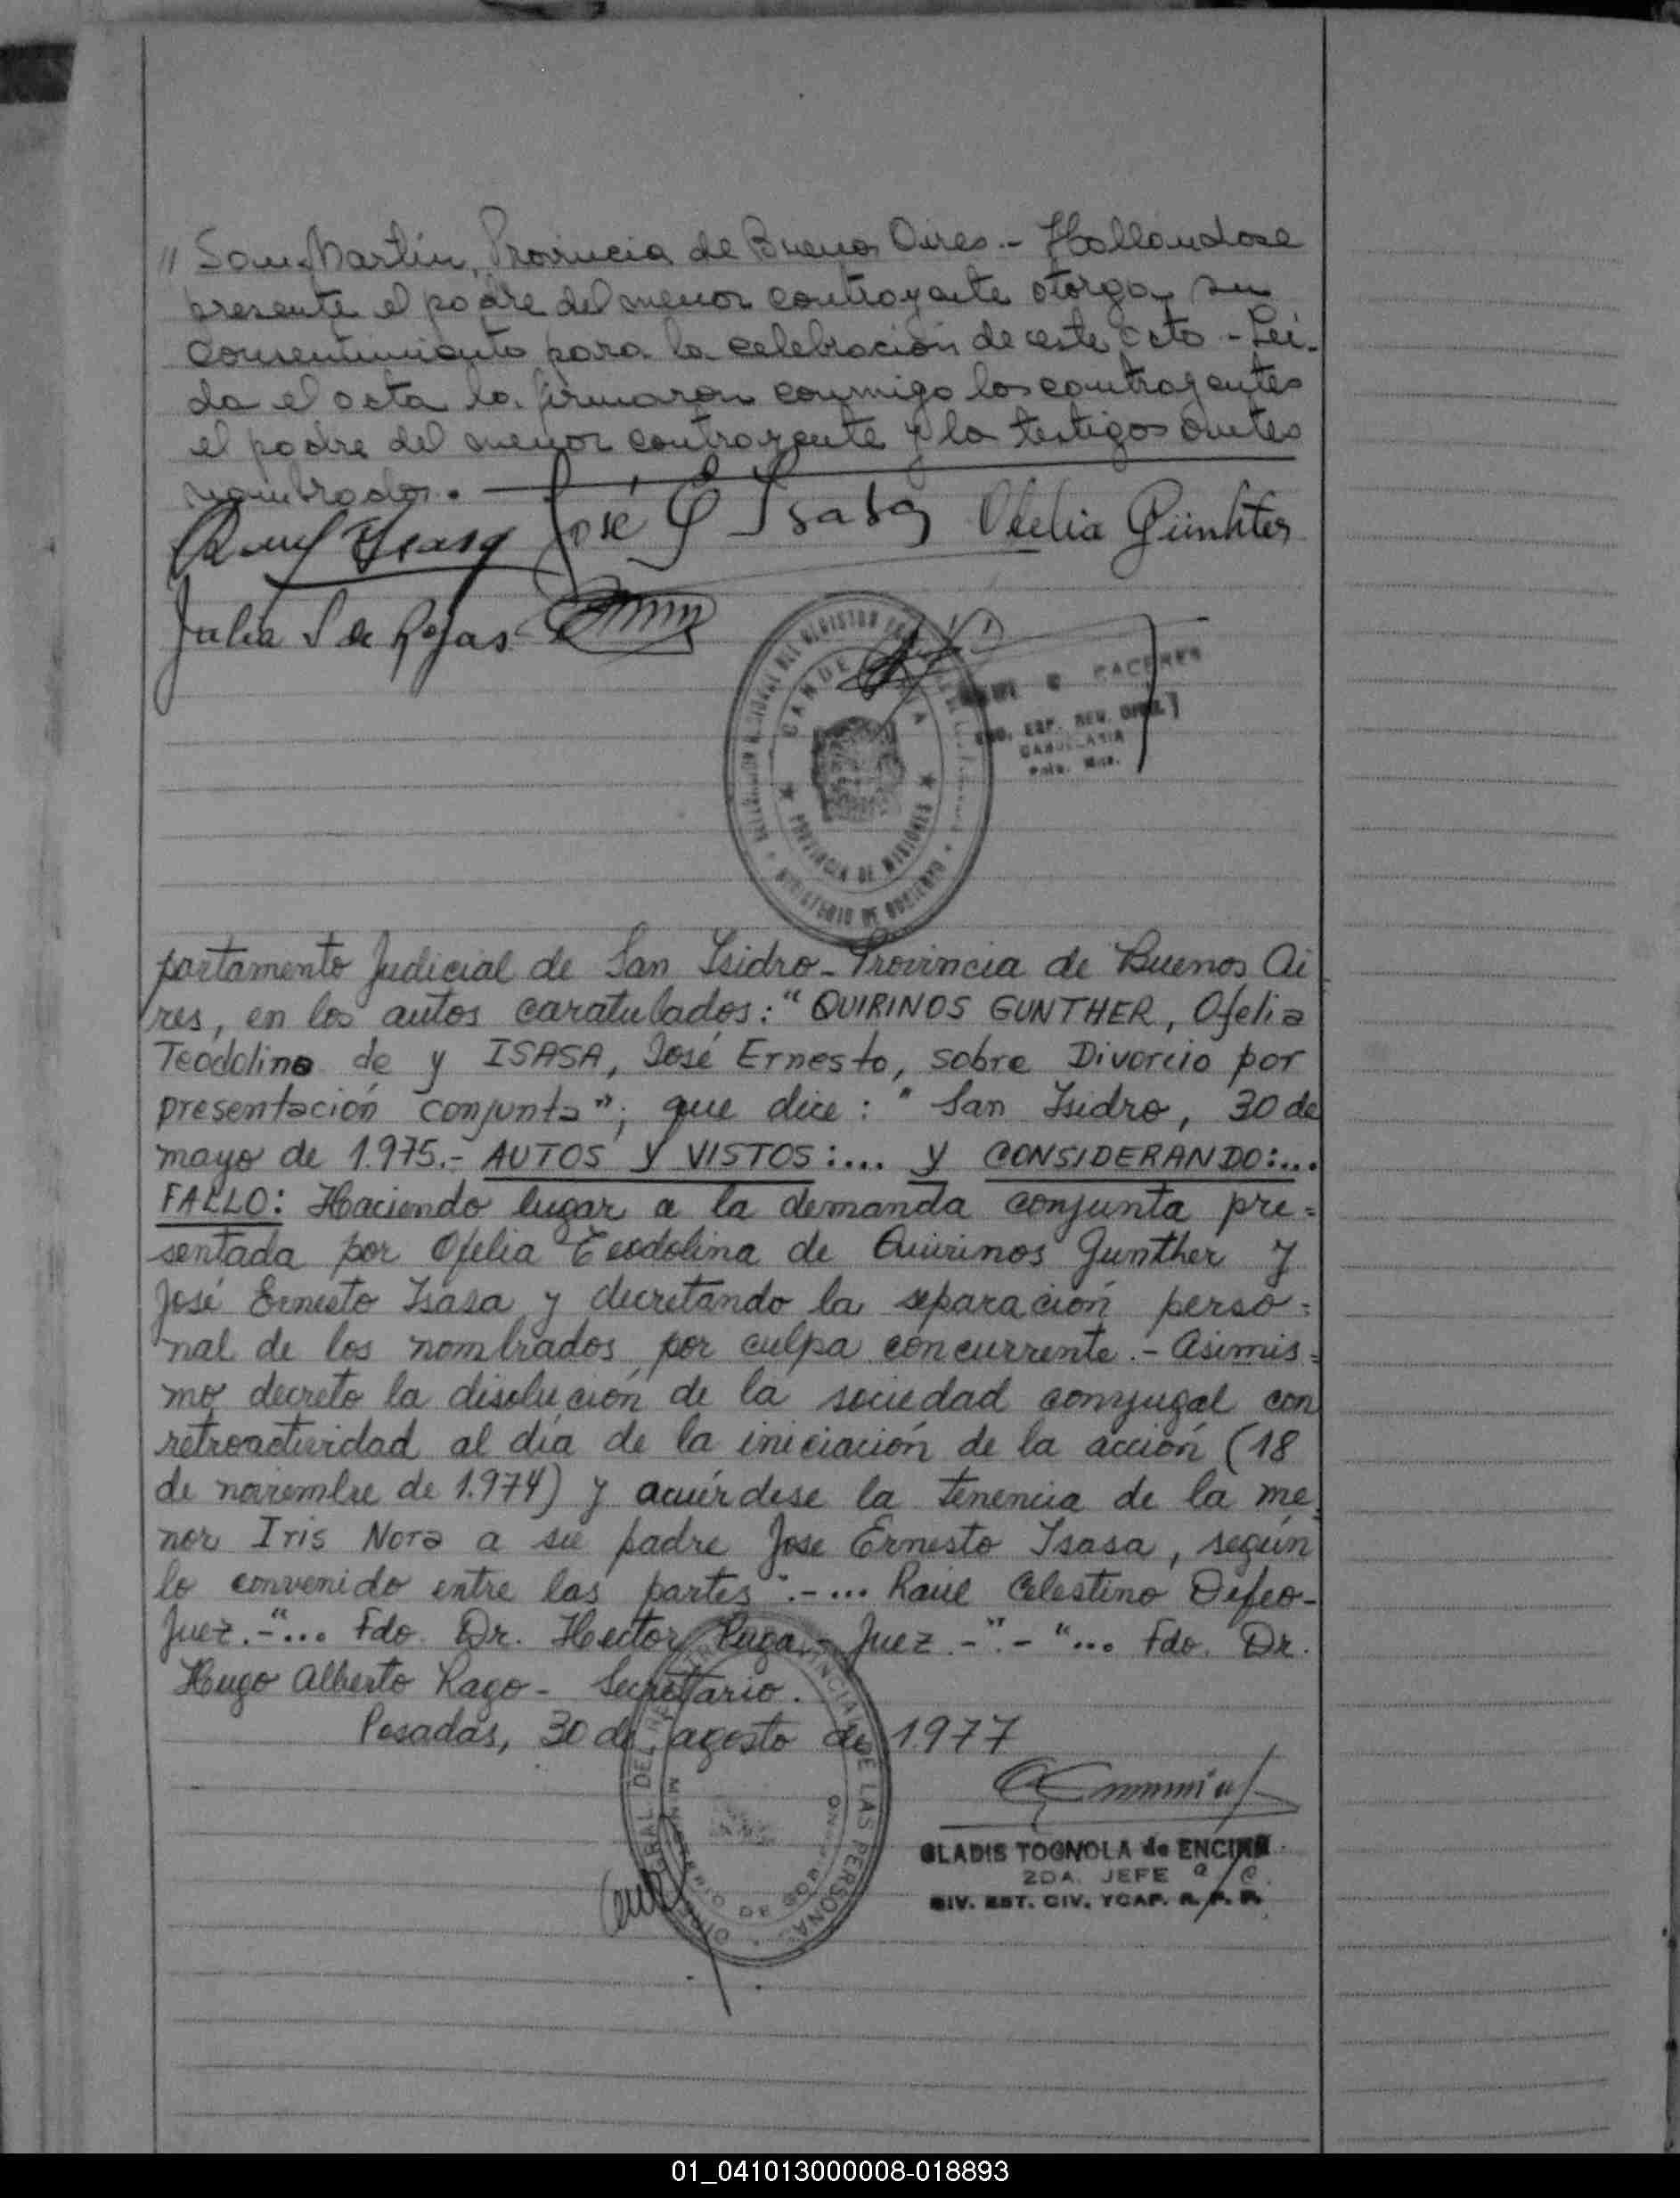 " San Martín, Provincia de Buenos Aires.- Hallandose
presente el padre del menor contrayente otorga su
consentimiento para la celebración de este acto - Leí-
da el acta la firmaron conmigo los contrayentes
el padre del menor contrayente y lo testigos antes
nombrados.
José E Isasa Ofelia Günhter
Julia S de Rojas
DELEGACION REGIONAL DEL REGISTRO
CANDELARIA
PROVINCIA DE MISIONES
MINISTERIO DE GOBIERNO
CACERES
ENC. ESP. REG. CIVIL
CANDELARIA
Pcia. Mnes.
partamento Judicial de San Isidro - Provincia de Buenos Ai
res, en los autos caratulados: "QUIRINOS GUNTHER, Ofelia
Teodolina de y ISASA, José Ernesto, sobre Divorcio por
presentación conjunta"; que dice: "San Isidro, 30 de
mayo de 1.975.- AUTOS Y VISTOS:... y CONSIDERANDO:...
FALLO: Haciendo lugar a la demanda conjunta pre=
sentada por Ofelia Teodolina de Quirinos Gunther y
José Ernesto Isasa y decretando la separación perso=
nal de los nombrados por culpa concurrente.- Asimis=
mo decreto la disolución de la sociedad conyugal con
retroactividad al día de la iniciación de la acción (18
de noviembre de 1.974) y acuérdese la tenencia de la me=
nor Iris Nora a su padre Jose Ernesto Isasa, según
lo convenido entre las partes".-... Raúl Celestino Defeo-
Juez.-"... Fdo. Dr. Hector Puga - Juez -".- "... Fdo. Dr.
Hugo Alberto Rago - Secretario.
Posadas, 30 de agosto de 1977
GLADIS TOGNOLA de ENCINA
2DA. JEFE a/c.
DIV. EST. CIV. Y CAP. R. P. P.